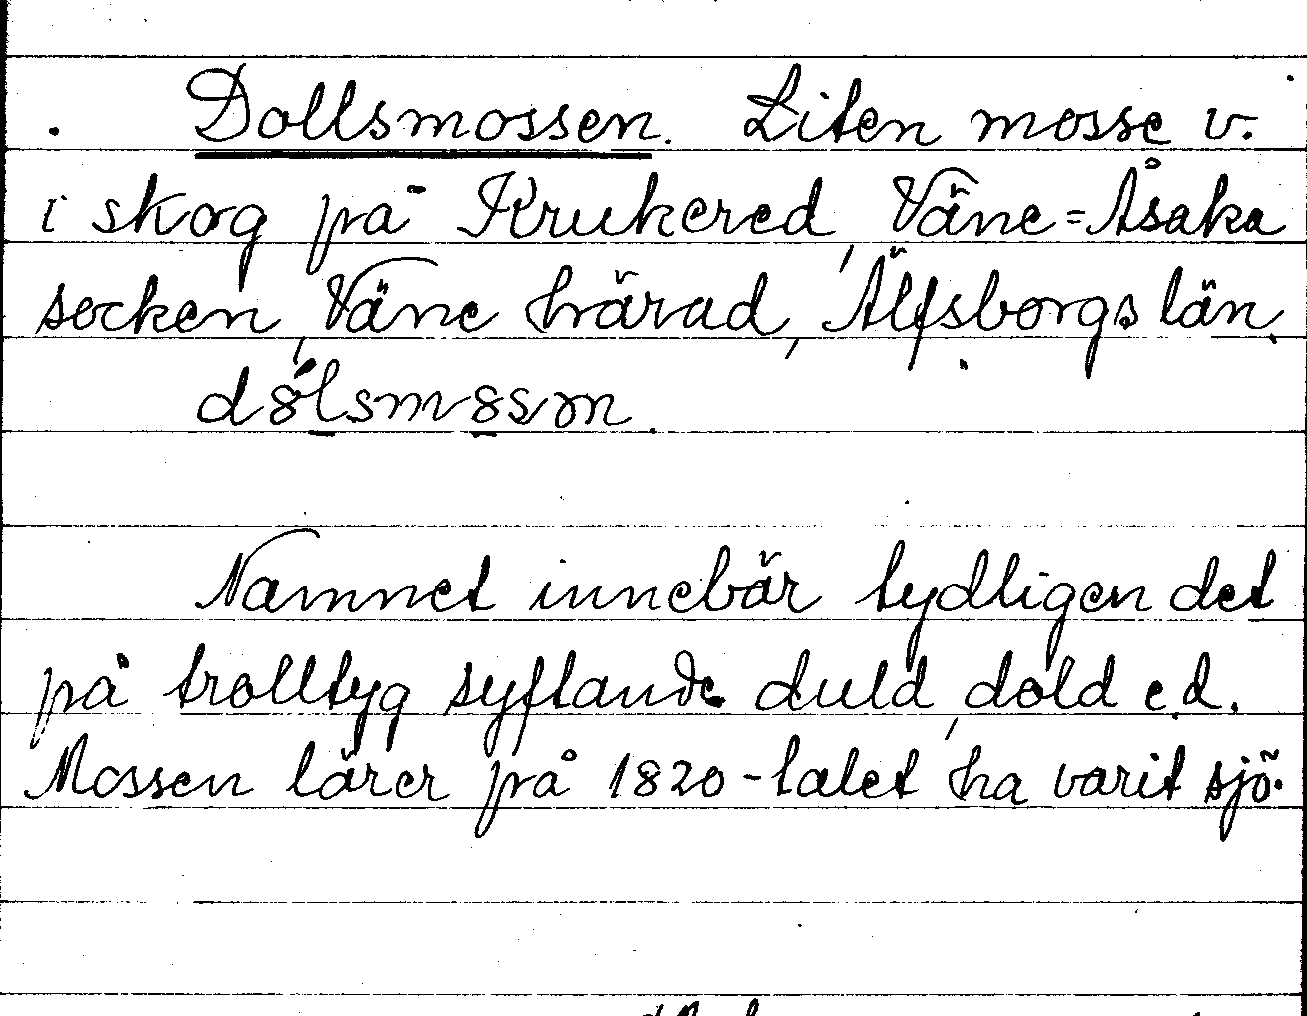 Dollsmossen. Liten mosse v.
i skog på Krukered, Väne-Åsaka
socken, Väne härad, Älfsborgs län.
Namnet innebär tydligen det
på trolltyg syftande duld, dold e.d.
Mossen lärer på 1820-talet ha varit sjö.